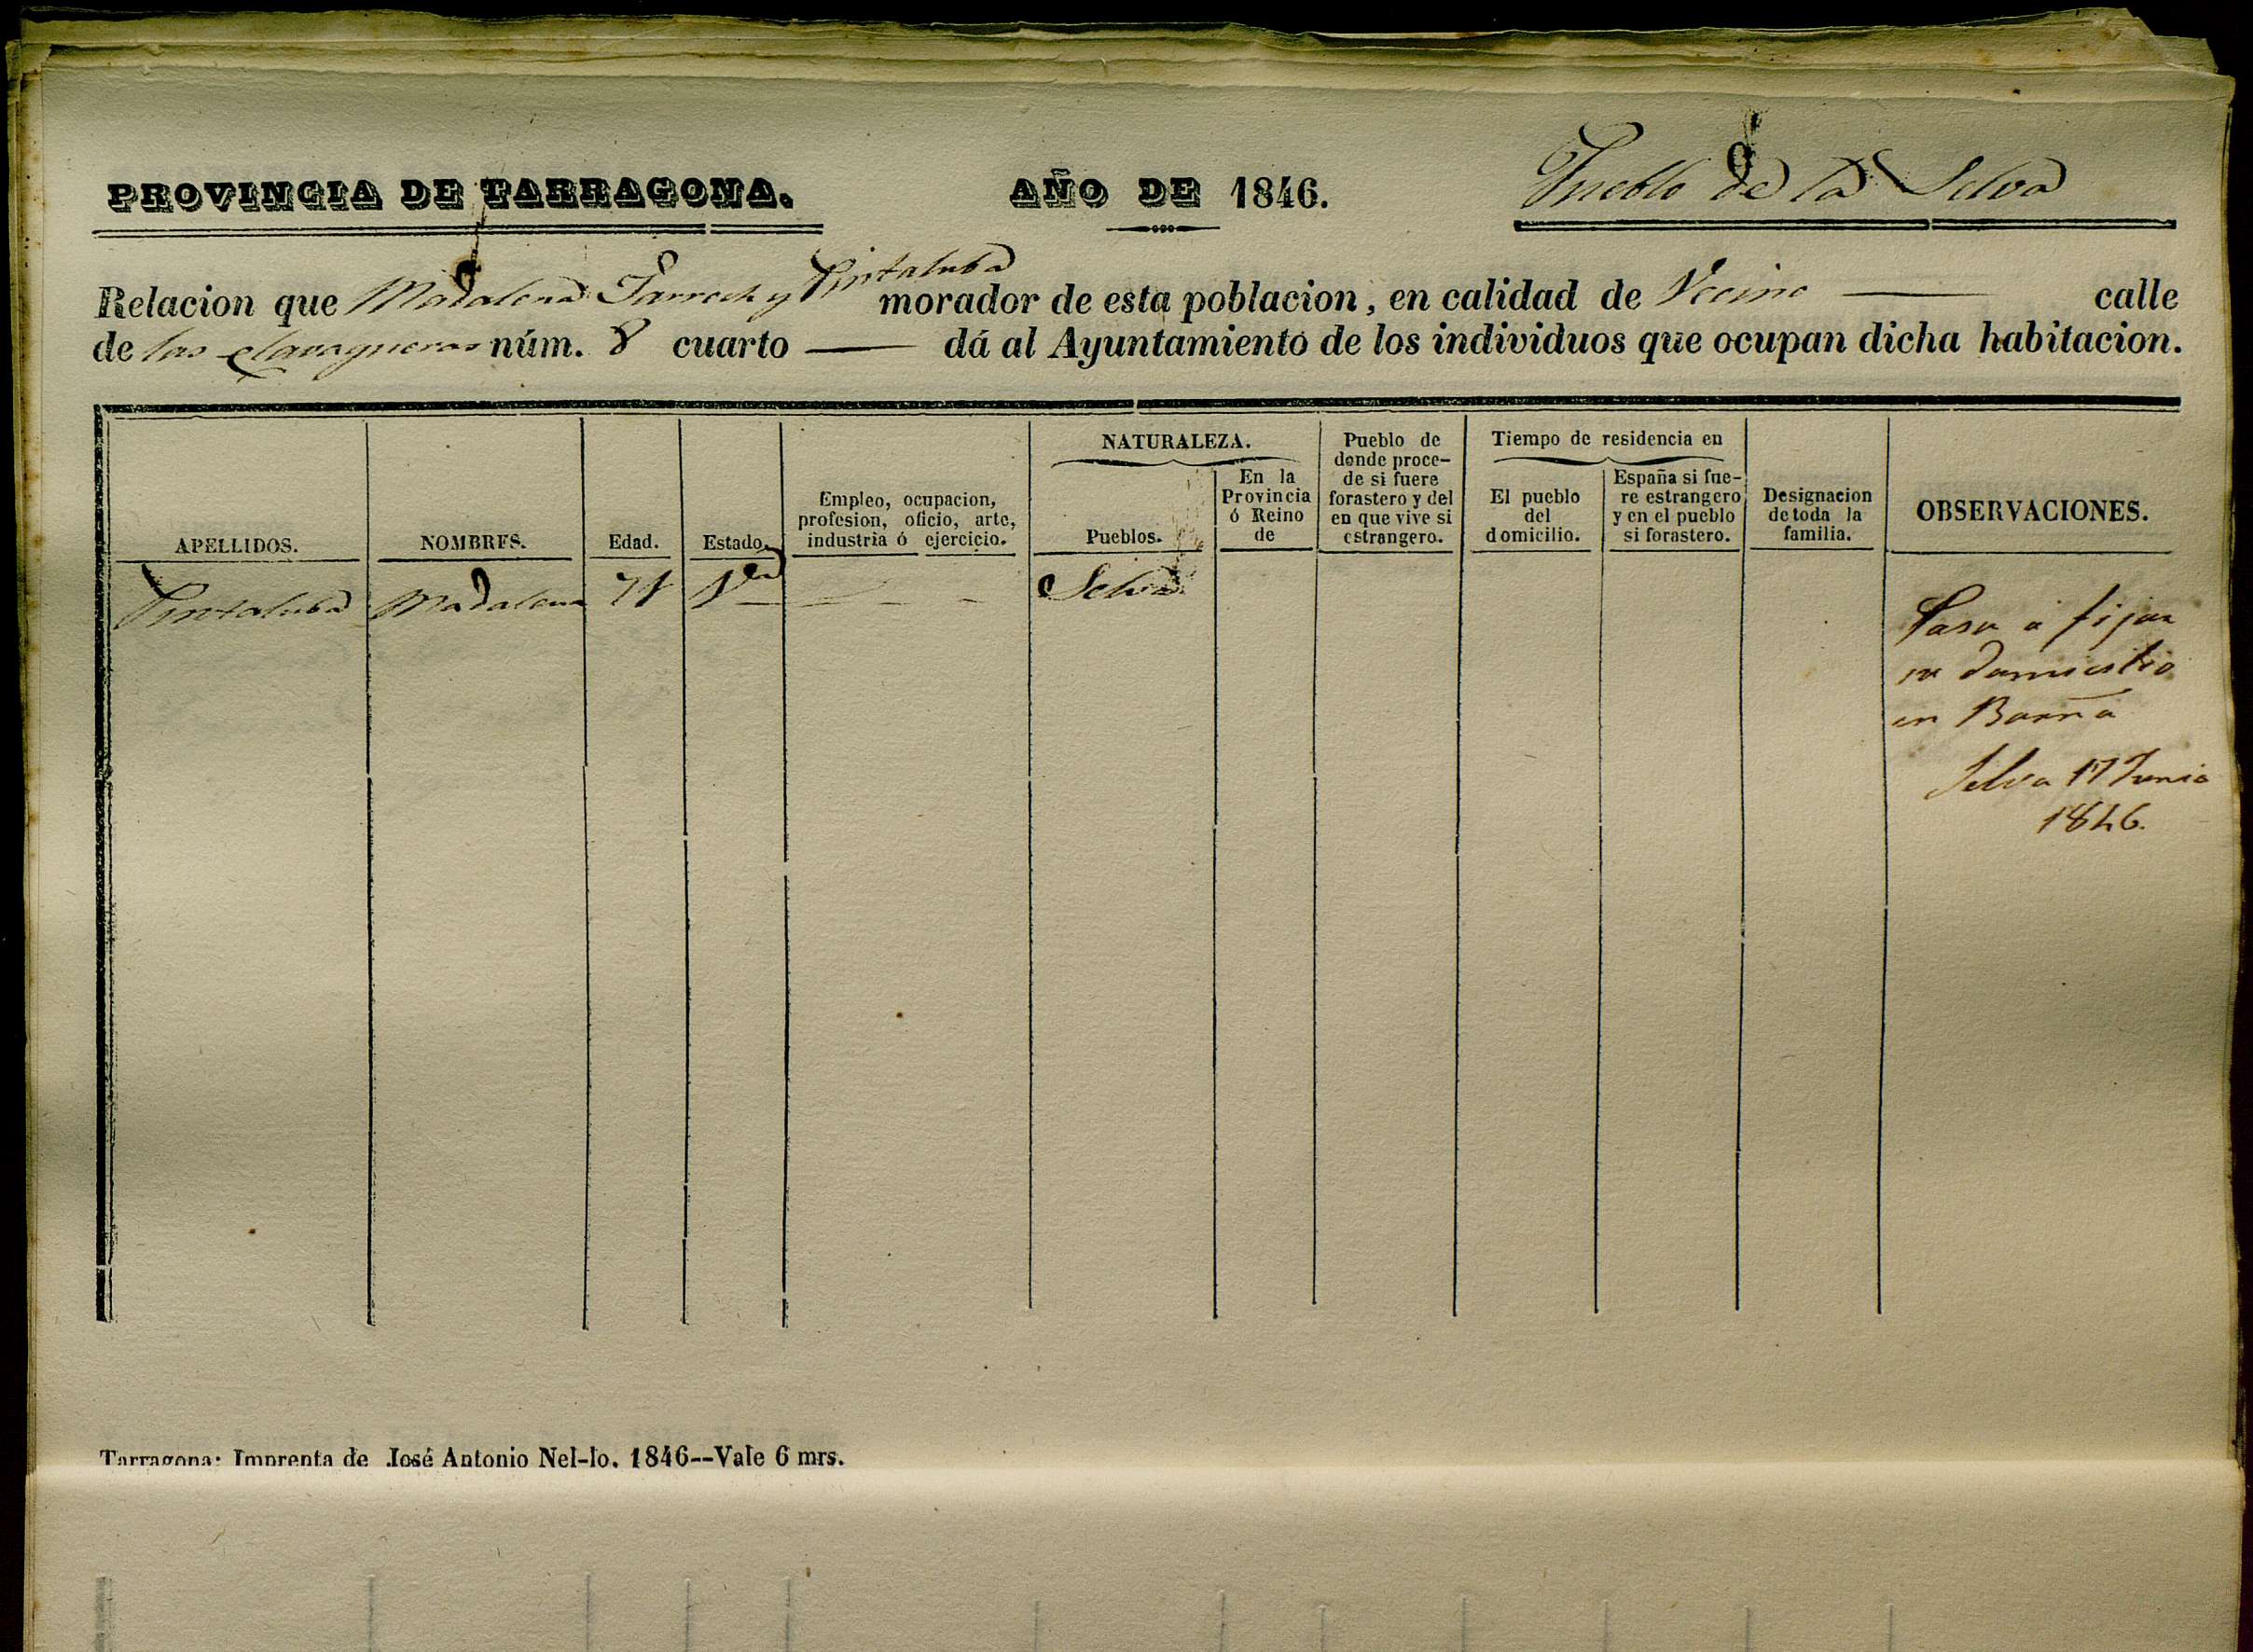 PROVINCIA DE TARRAGONA. AÑO DE 1846. Pueblo de la Selva
Relacion que Madalena Farrech y Pintaluba morador de esta poblacion, en calidad de Vecino calle
de las núm. 8 cuarto — dá al Ayuntamiento de los individuos que ocupan dicha habitacion.
APELLIDOS.
NOMBRES.
Edad.
Estado.
Empleo, ocupacion,
profesion, oficio, arte,
industria ó ejercicio.
NATURALEZA.
Pueblos.
En la
Provincia
ó Reino
de
Pueblo de
donde proce-
de si fuere
forastero y del
en que vive si
estrangero.
Tiempo de residencia en
El pueblo
del
domicilio.
España si fue-
re estrangero
y en el pueblo
si forastero.
Designacion
de toda la
familia.
OBSERVACIONES.
Pintaluba Madalena 71 Vda — — — Selva
Pasa á fijar
su domicilio
en Barna
Selva 17 Junio
1846.
Tarragona: Imprenta de José Antonio Nel-lo. 1846--Vale 6 mrs.